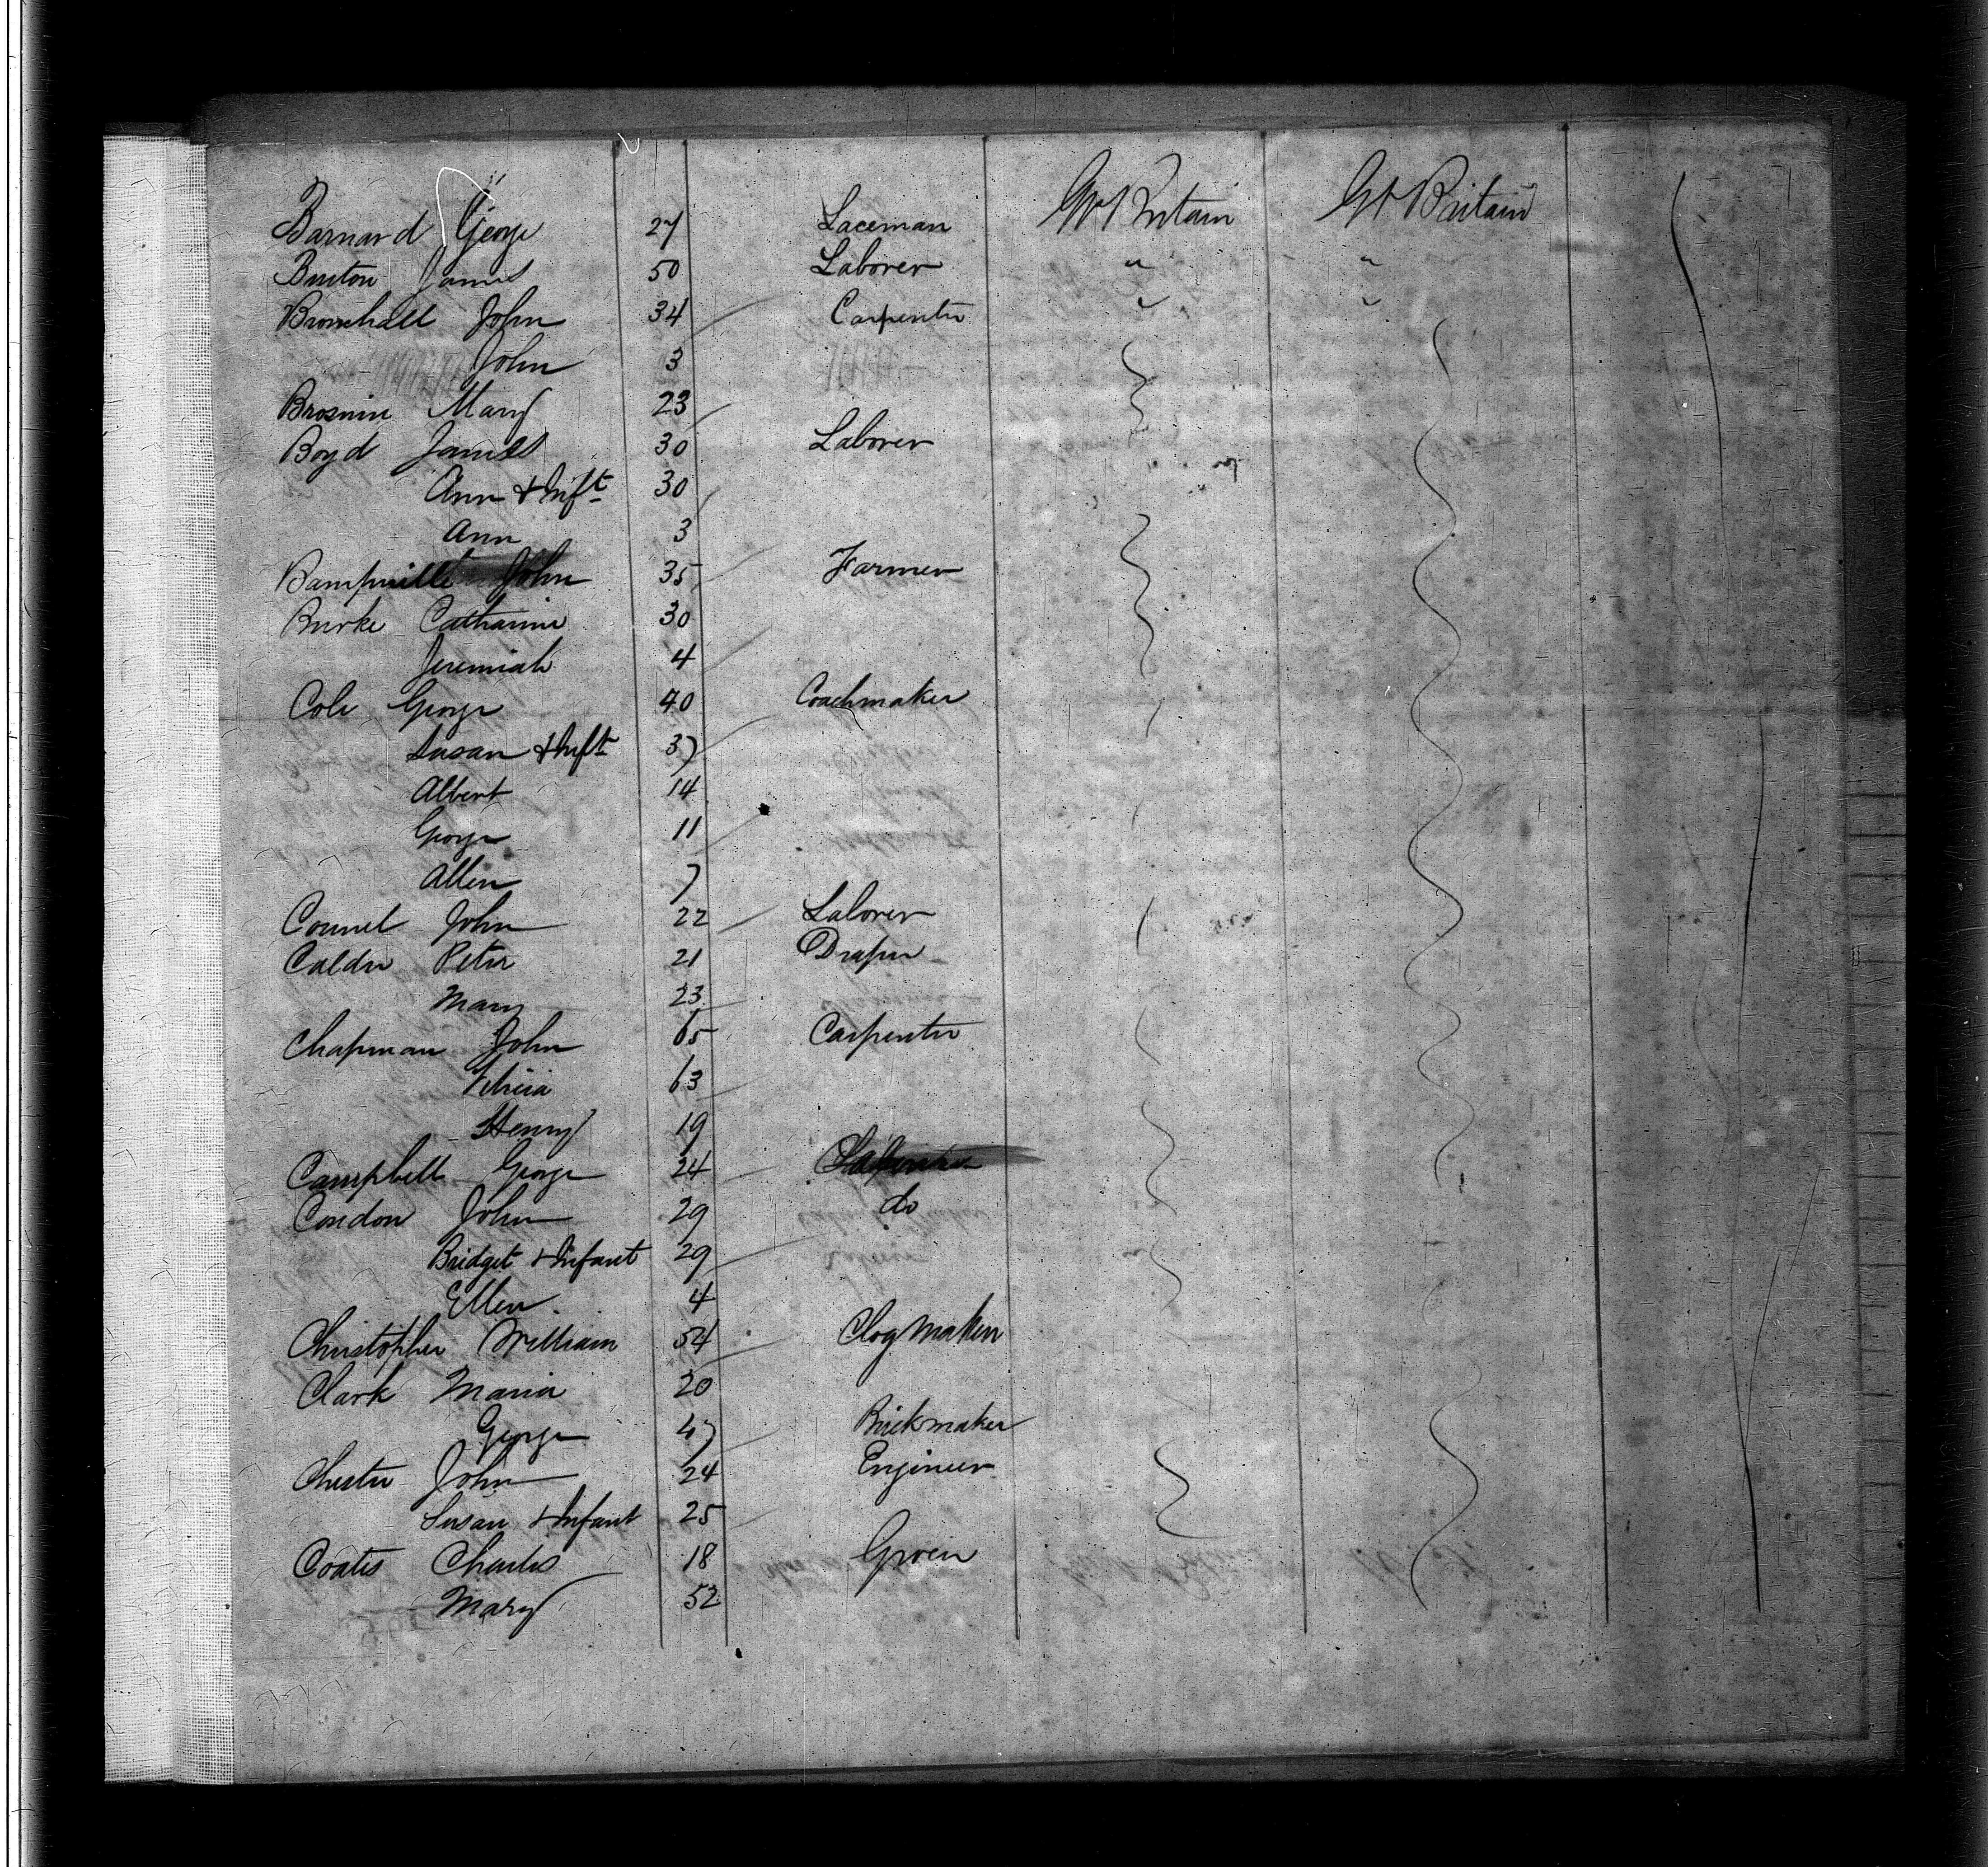 Barnard George 27 Laceman Gt Britain Gt Britain
Burton James 50 Laborer " "
Bromhall John 34 Carpenter " "
John 3
Brosnin Mary 23
Boyd James 30 Laborer
Ann & Inft 30
Ann 3
John 35 Farmer
Burke Catharine 30
Jeremiah 4
Cole George 40 Coachmaker
Susan & Inft 37
Albert 14
George 11
Allen 7
Connel John 22 Laborer
Calder Peter 21 Draper
Mary 23
Chapman John 65 Carpenter
63
Henry 19
Campbell George 24 Laborer
Condon John 29 do
Bridget & Infant 29
Ellen 4
Christopher William 54 Clog Maker
Clark Maria 20
George 47 Brickmaker
Chester John 24 Engineer
Susan & Infant 25
Coates Charles 18 Grocer
Mary 52